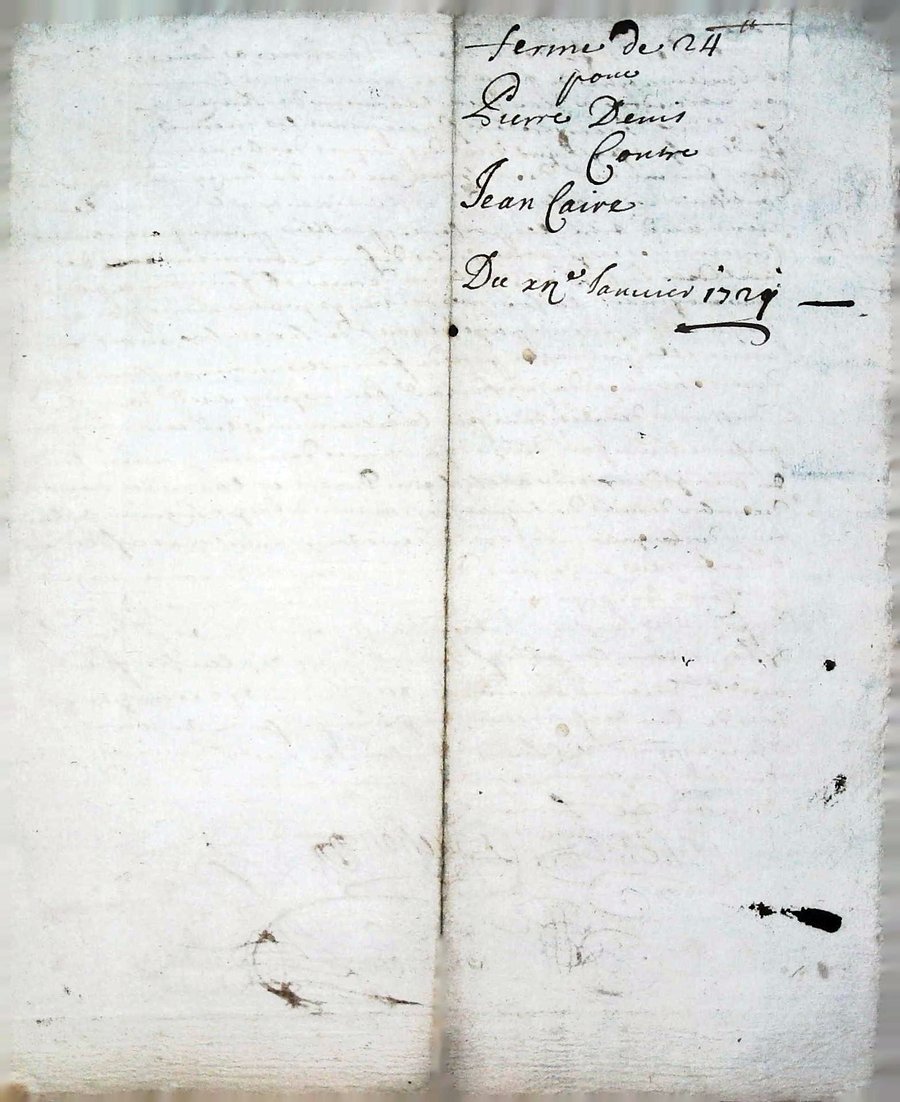 ferme de 24 tt
pour
Pierre Denis
Contre
Jean Caire
Du Janvier